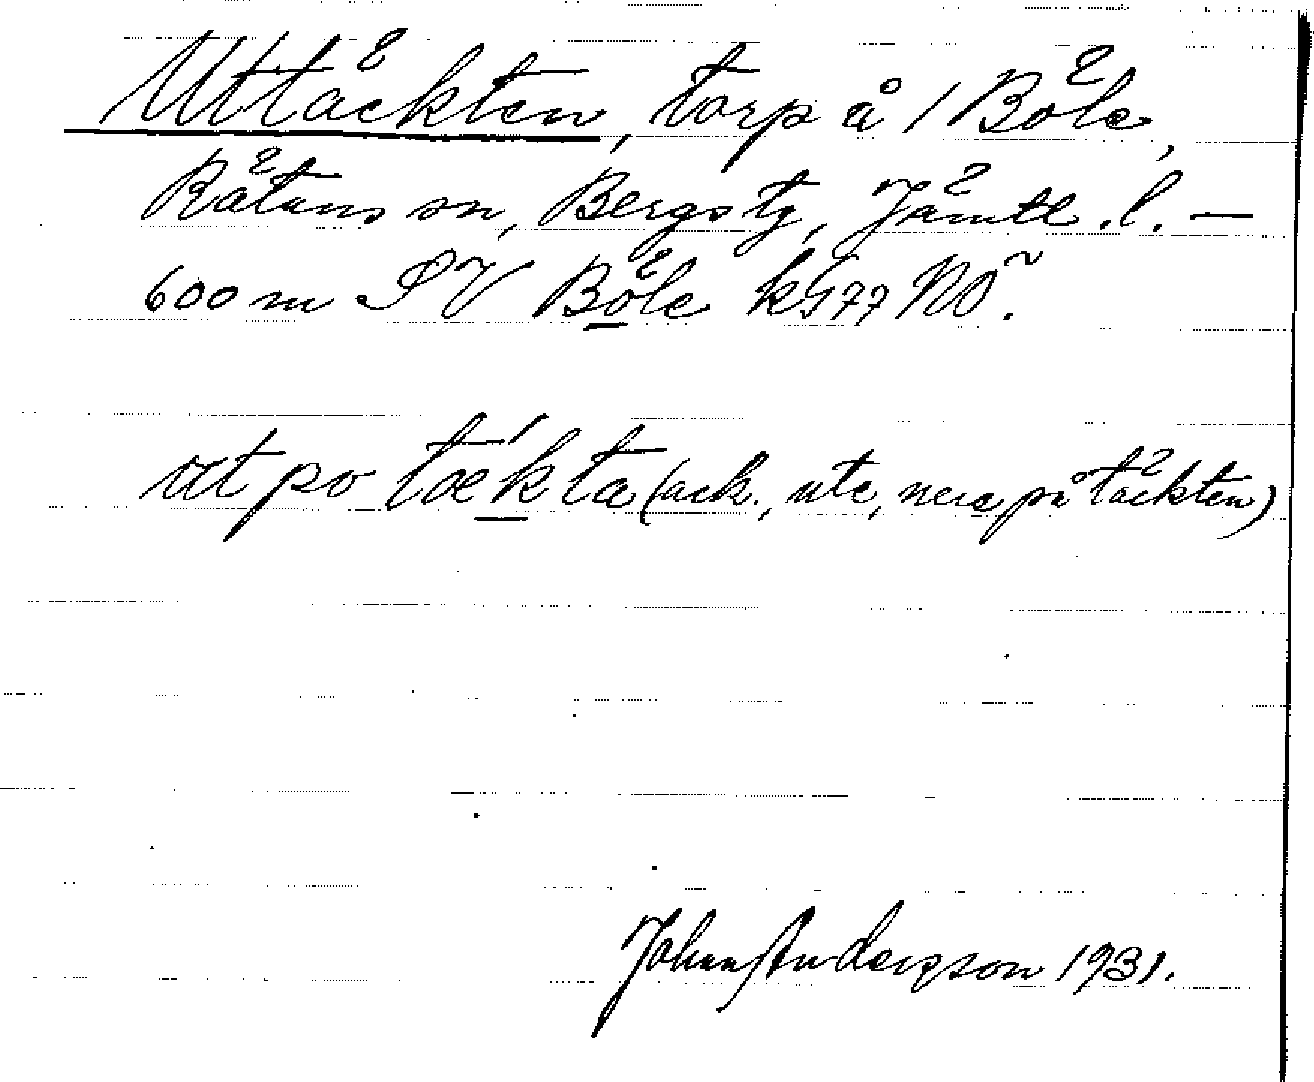 Uttäckten, torp å 1 Böle,
Rätans sn, Bergs tg, Jämtl. l. —
600 m SV Böle k G 77 NÖ.
ut po tækta (ack., ute, nere på täckten)
Johan Andersson 1931.